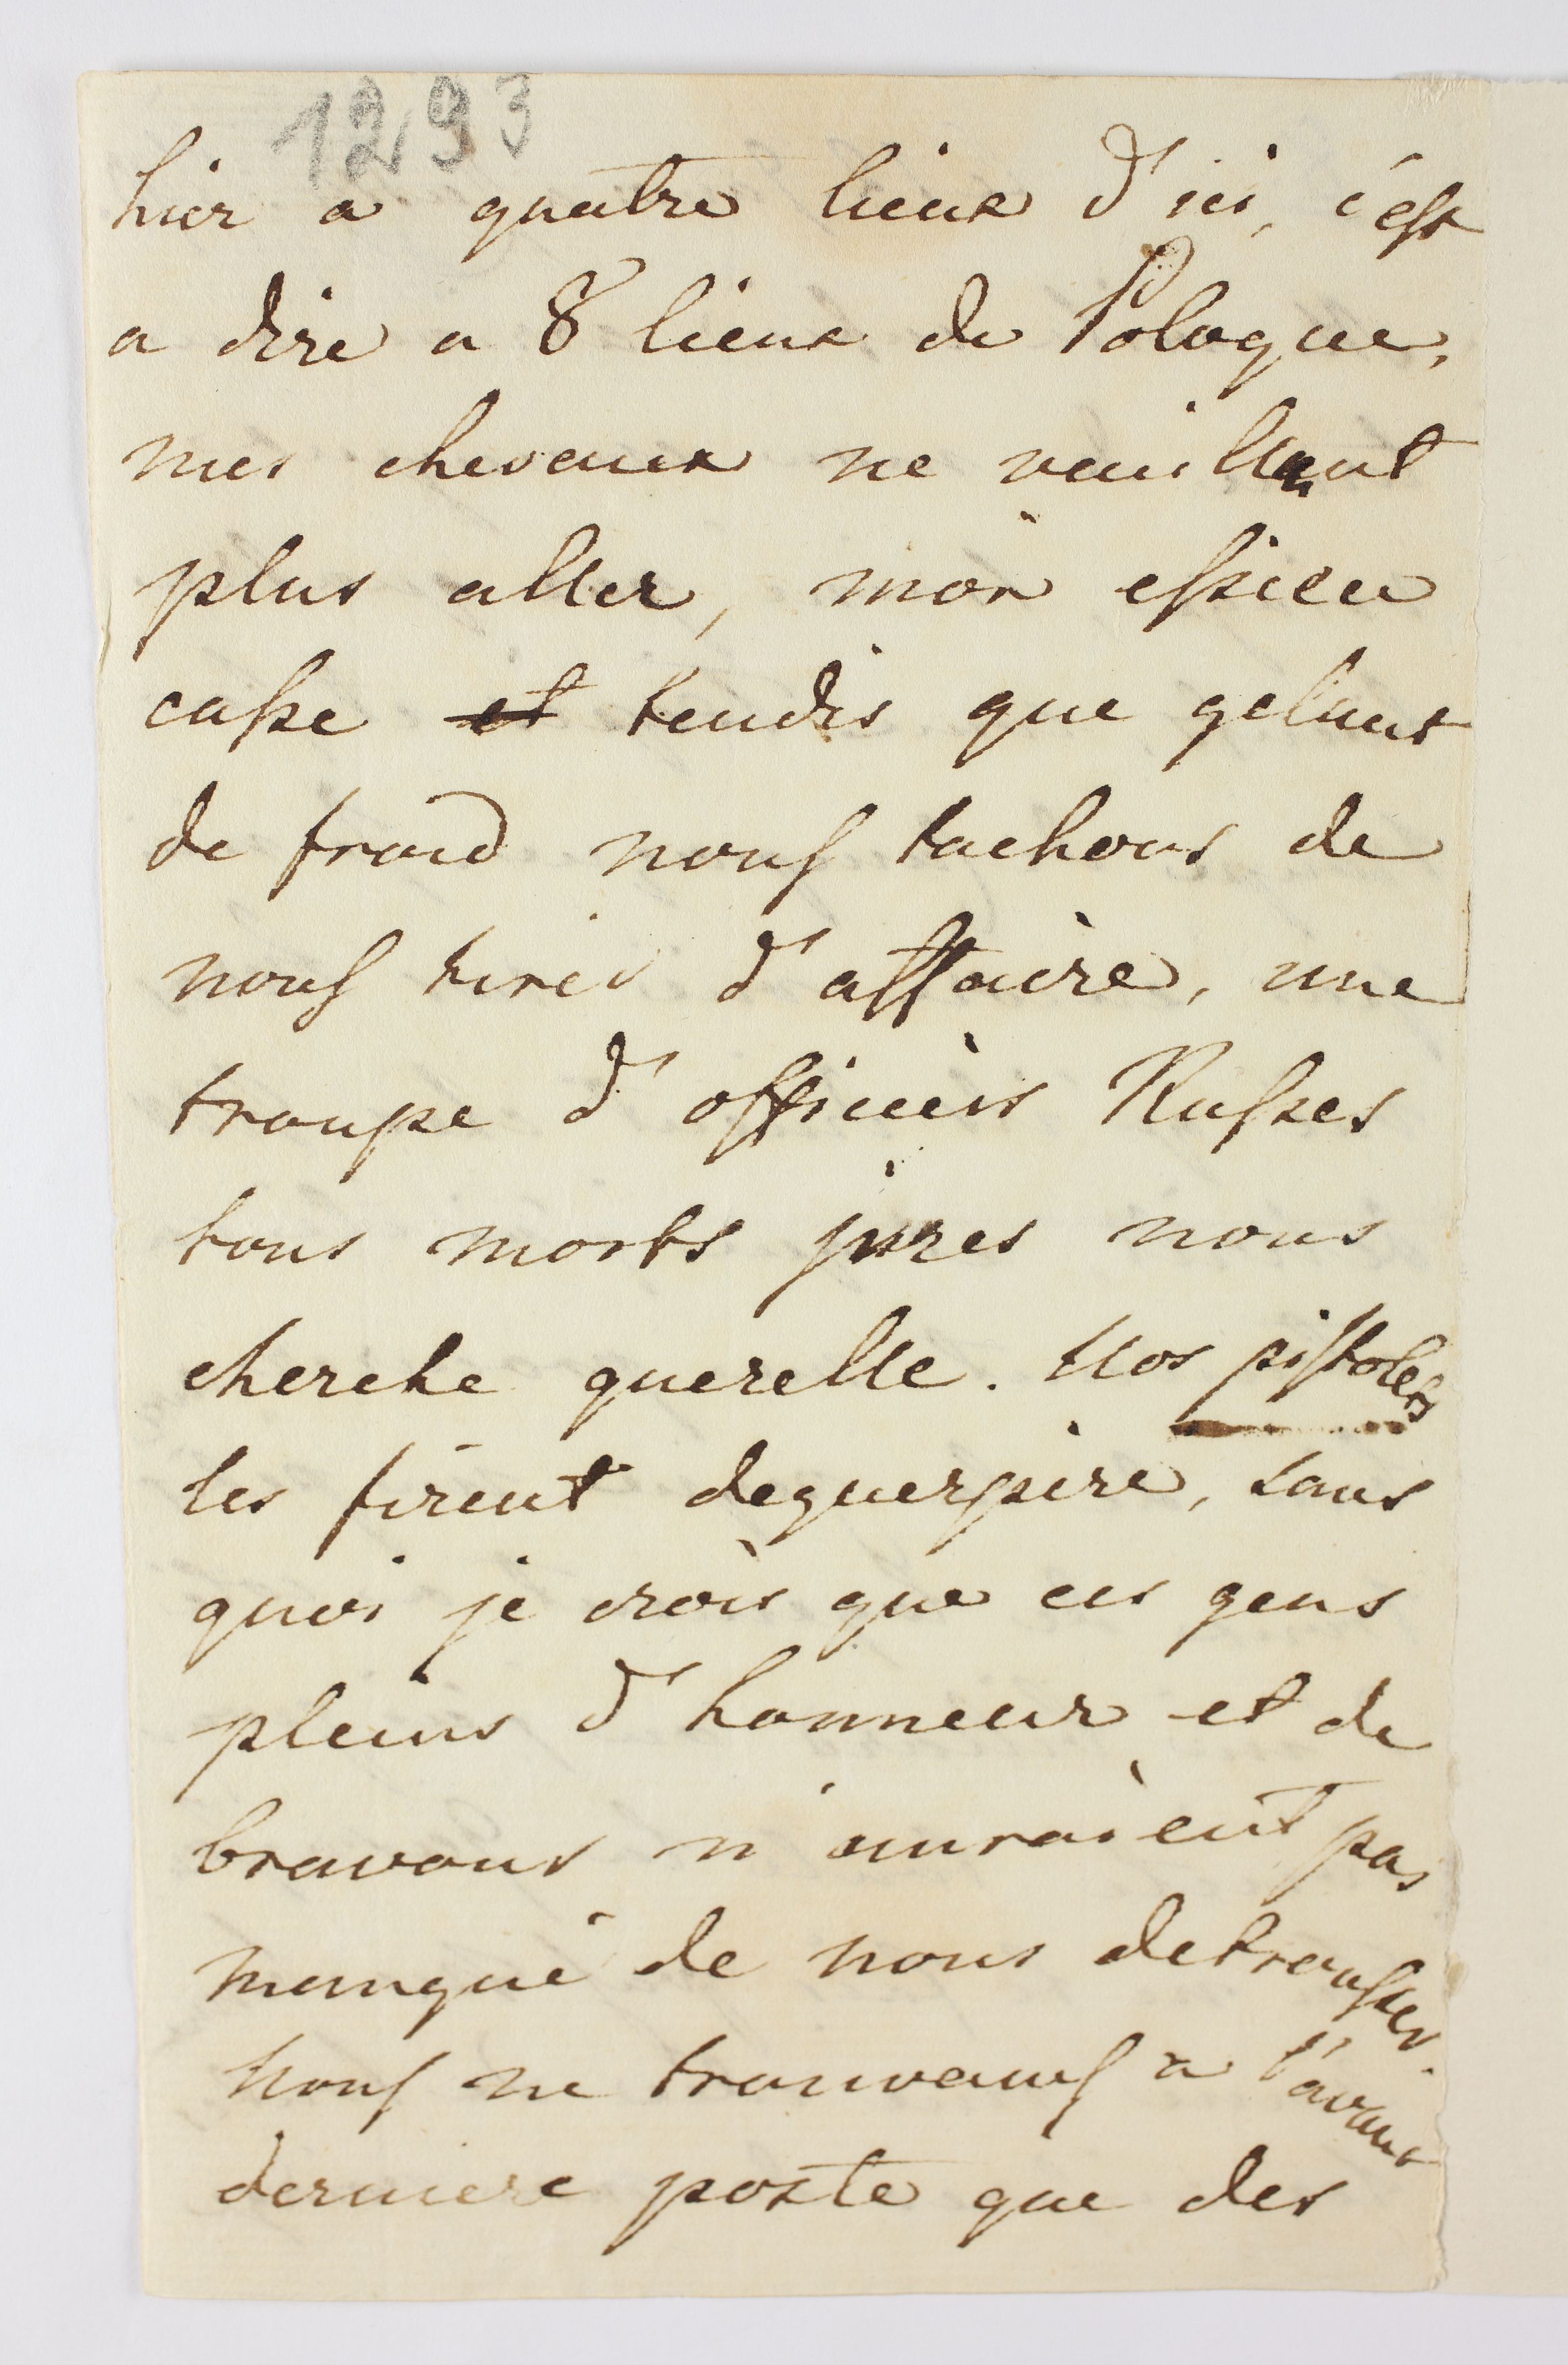 1293
hier a quatre lieue d'ici, c'est
a dire a 8 lieue de Pologne,
mes chevaux ne veuillant
plus aller, mon essieu
casse et tendis que gelant
de froid nous tachons de
nous tirer d'affaire, une
troupe d'officiers Russes
tous morts jvres nous
cherche querelle. Nos pistolets
les firent deguerpire, sans
quoi je crois que ces gens
pleins d'honneur et de
bravour n'auraient pas
manqué de nous detrousser.
Nous ne trouvames a l'avant
derniere poste que des